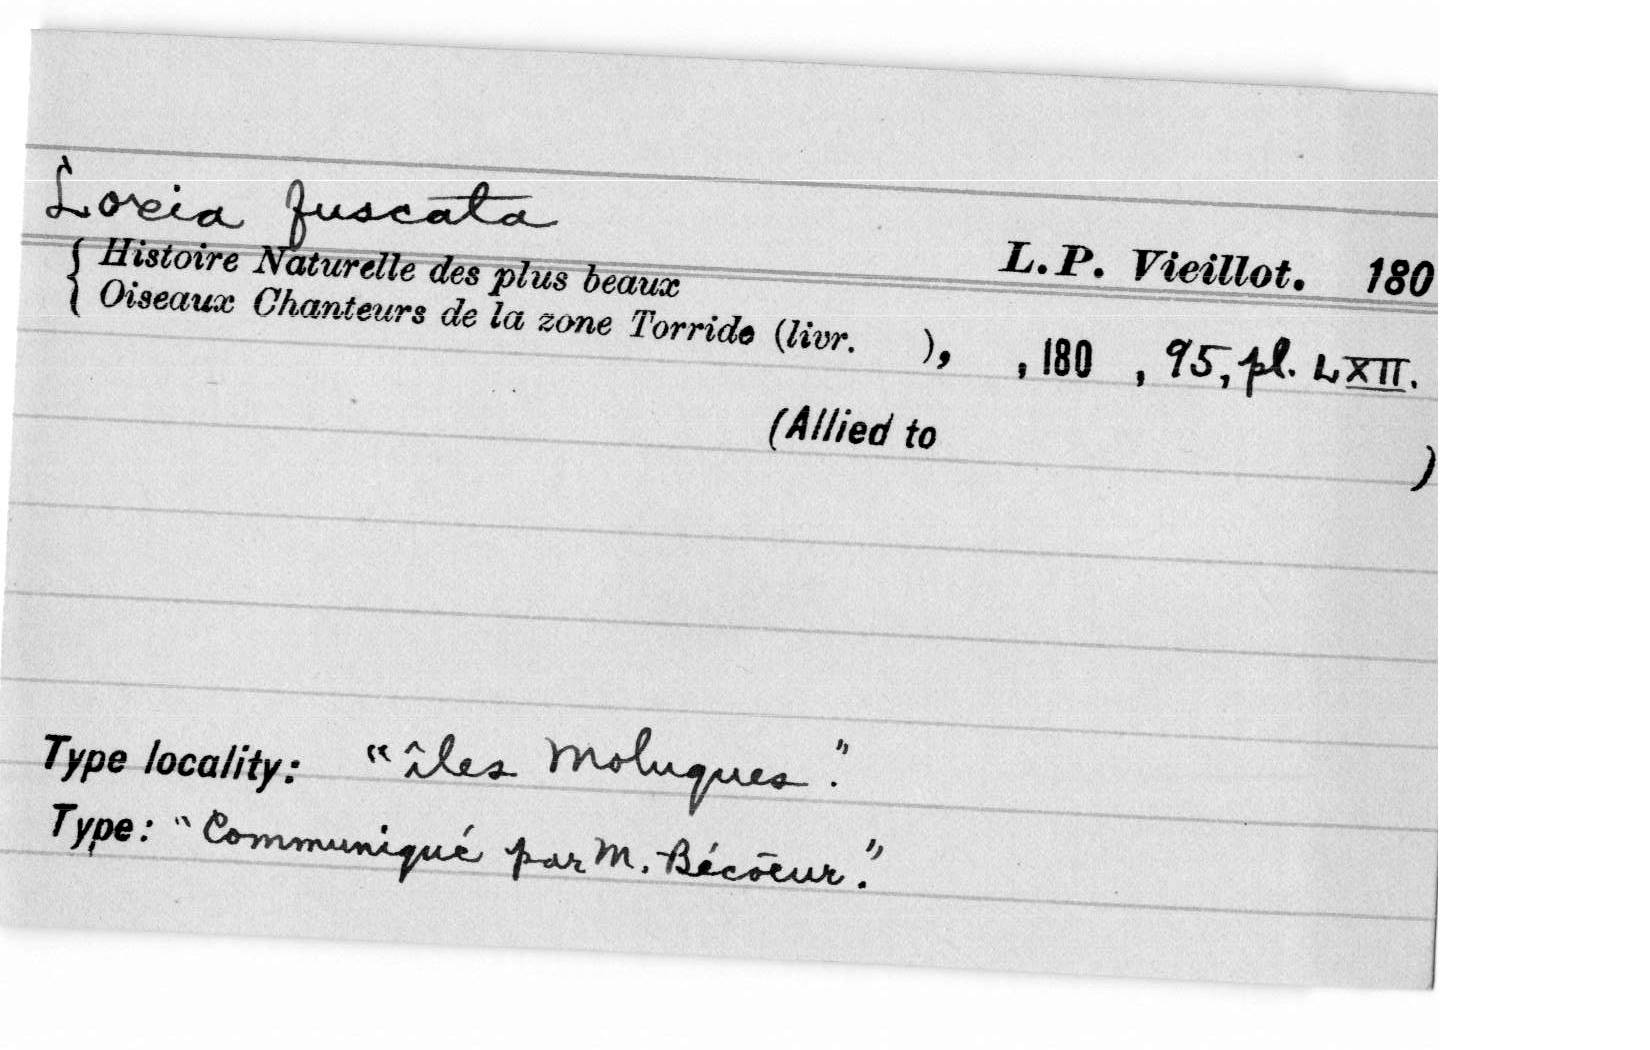 Loxia fuscata
L.P. Vieillot. 180
{ Histoire Naturelle des plus beaux
{ Oiseaux Chanteurs de la zone Torride (livr. ), , 180 , 95, pl. LXII.
(Allied to )
Type locality: "îles Moluques."
Type: "Communiqué par M. Bécoeur."